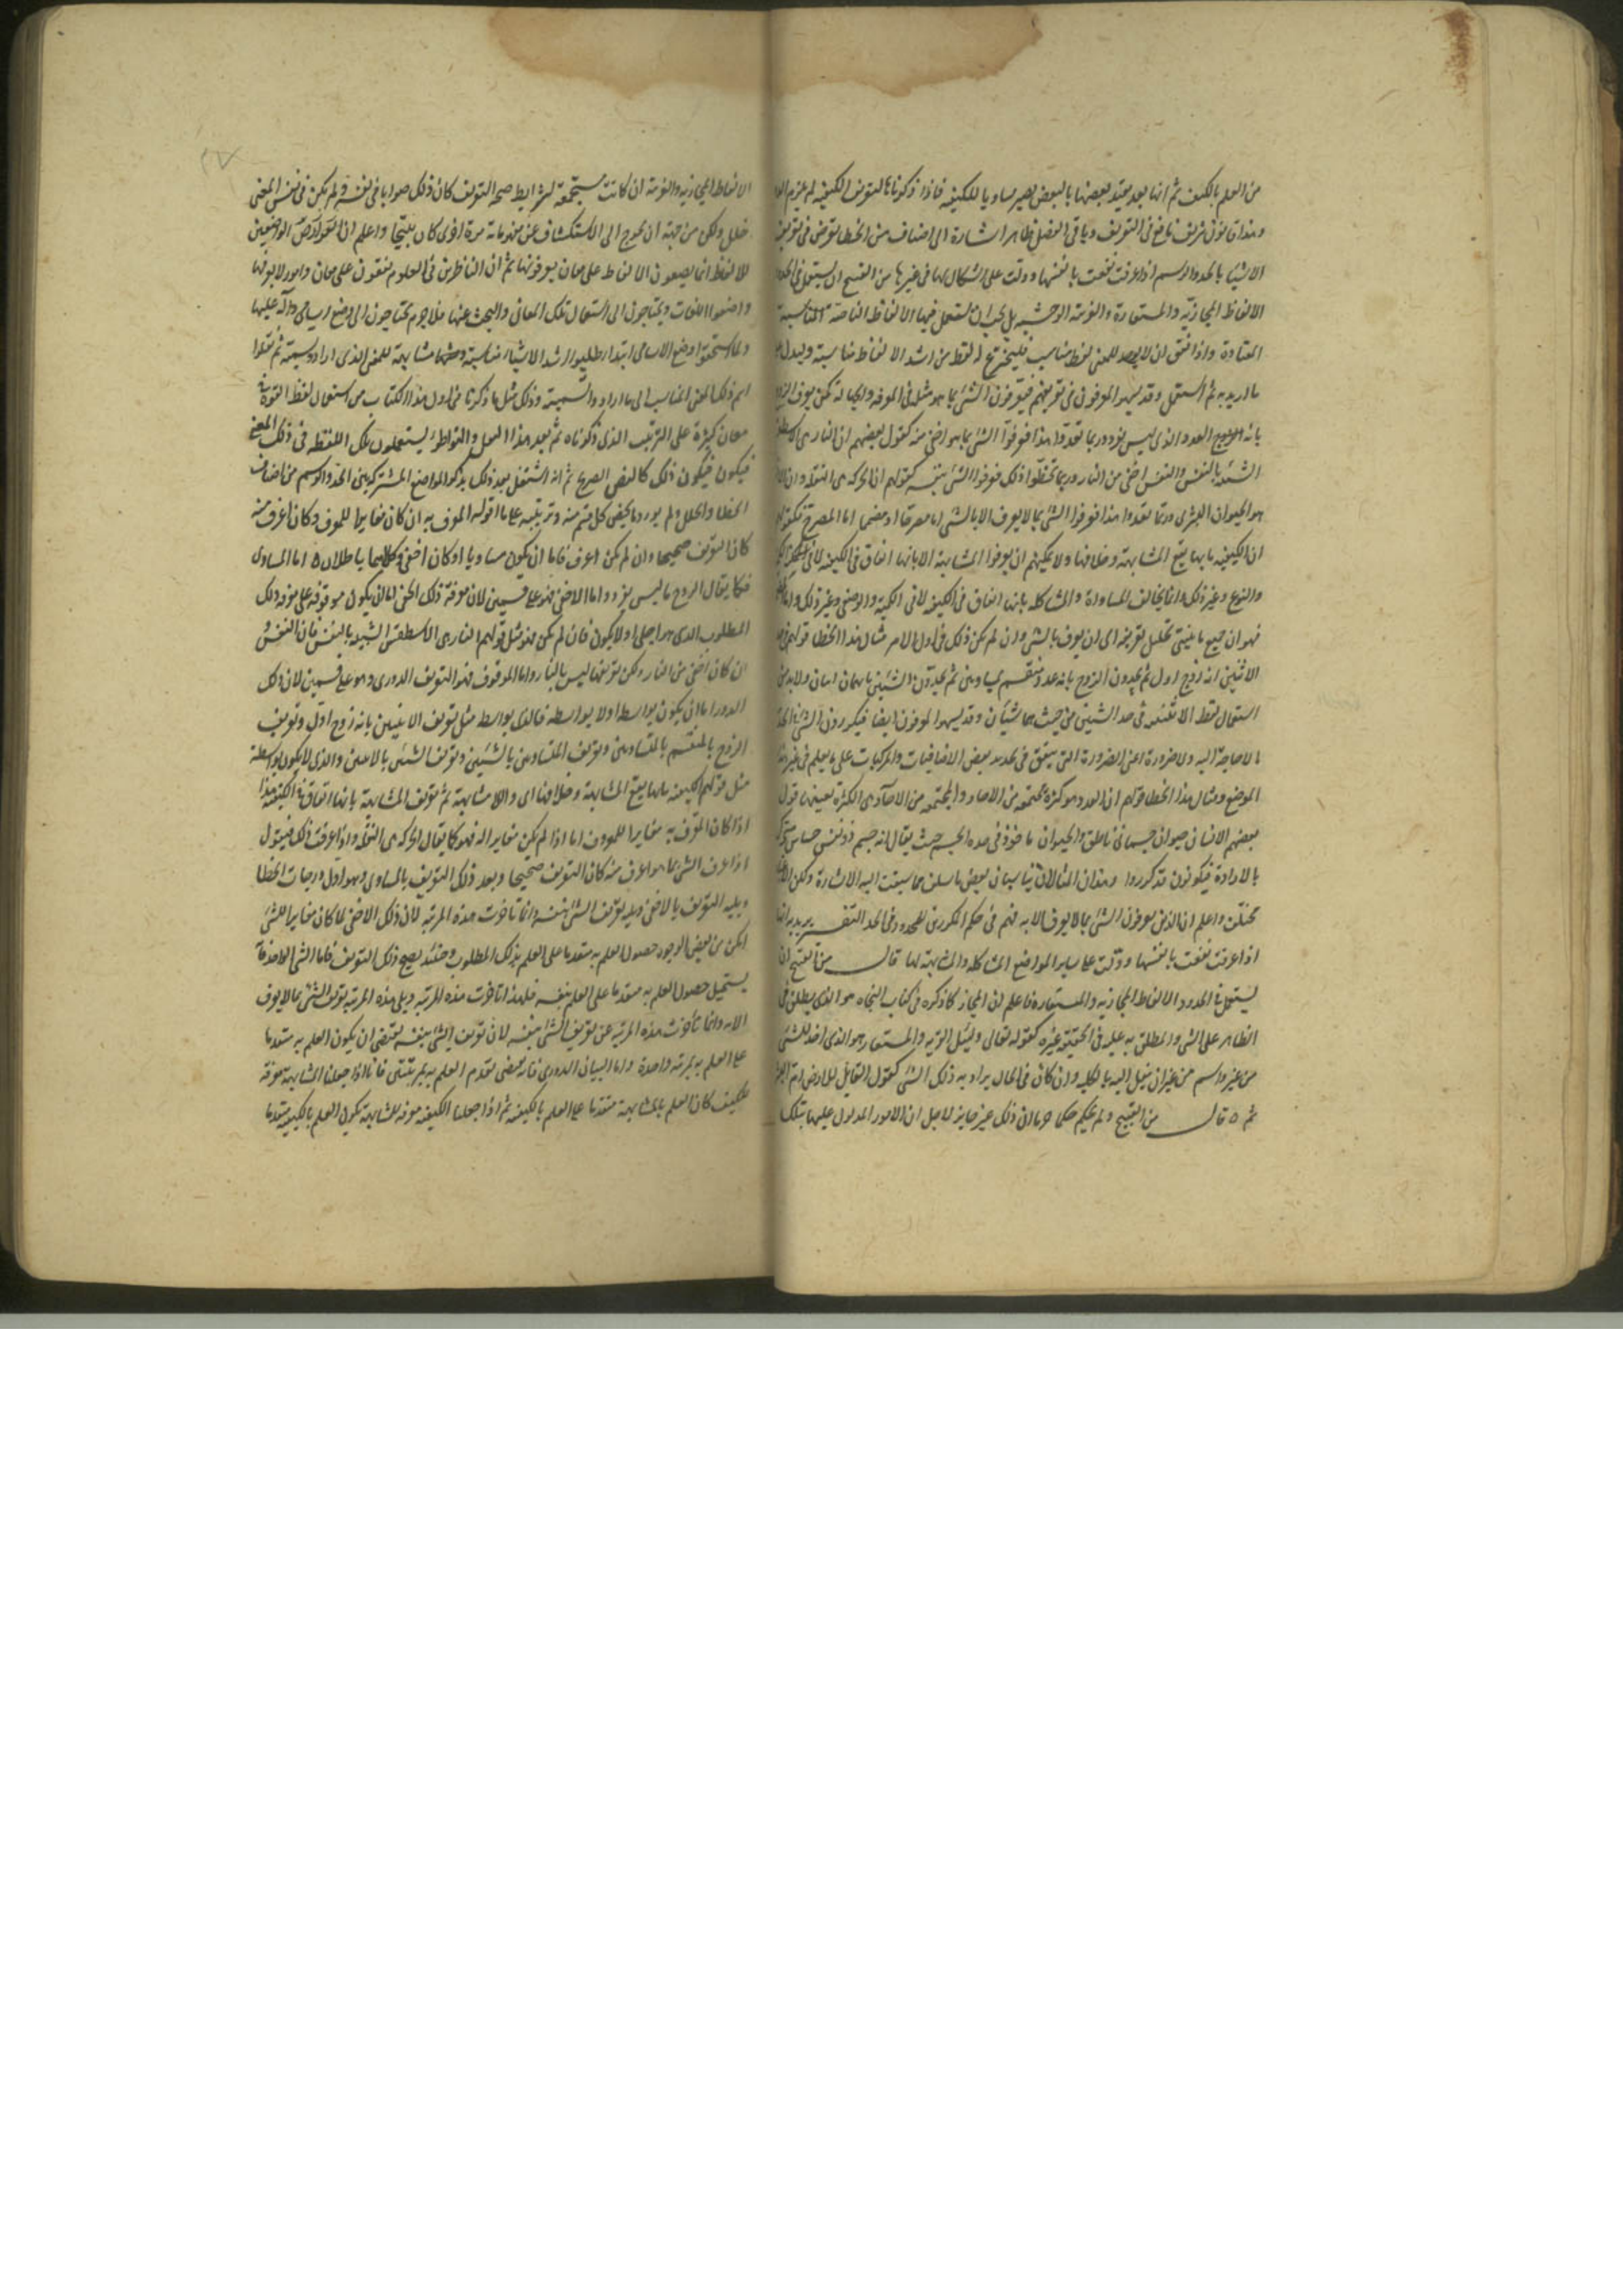 من العلم بالكيف ثم انها بعد تقييد بعضها بالبعض يصير مساويا للكيفية فاذا ذكرناها لتعريف الكيفية لم يلزم
وهذا قانون شريف نافع فى التعريف وباقى الفصل ظاهر اشارة الى اصناف من الخطا تعرض فى تعريف
الاشيا بالحد والرسم اذا عرفت نفعت بانفسها ودلت على اشكال لها فى غيرها من القبيح ان يستعمل فى الحدود
الالفاظ المجازية والمستعارة والغريبة الوحشية بل يجب ان تستعمل فيها الالفاظ الناصة المناسبة
المعتادة واذا اتفق ان لا يوجد للمعنى لفظ مناسب فليخترع له لفظ من اشد الالفاظ مناسبة وليدل
ما اريد به ثم استعمل وقد يسهو المعرفون فى تعريفهم فيعرفون الشئ بما هو مثله فى المعرفة والجهالة كمن يعرف الزوج
بانه العدد الذى ليس بفرد وربما تعدوا هذا فعرفوا الشئ بما هو اخفى منه كقول بعضهم ان النار هى الاسطقس
الشبيه بالنفس والنفس اخفى من النار وربما تخطوا ذلك فعرفوا الشئ بنفسه كقولهم ان الحركة هى النقلة وان الانسان
هو الحيوان البشرى وربما تعدوا هذا فعرفوا الشئ بما لا يعرف الا بالشئ اما مصرحا او مضمرا اما المصرح فكقولهم
ان الكيفية ما بها يقع المشابهة وخلافها ولا يمكنهم ان يعرفوا المشابهة الا بانها اتفاق فى الكيفية
والنوع وغير ذلك وانما يخالف المساواة والمشاكلة بانها اتفاق فى الكيفية لا فى الكمية والوضع وغير ذلك واما
فهو ان جميع ما ينتهى تحليل تعريفه الى ان يعرف بالشئ وان لم يكن ذلك فى اول الامر مثال هذا الخطا قولهم
الاثنين انه زوج اول ثم يحدون الزوج بانه عدد منقسم بمتساويين ثم يحدون الشيئين بانهما اثنان ولا بد من
استعمال لفظ الاثنينية فى حد الشيئين من حيث هما شيئان وقد يسهو المعرفون ايضا فيكررون الشئ فى الحد
لا حاجة اليه ولا ضرورة اعنى الضرورة التى تتفق فى تحديد بعض الاضافيات والمركبات على ما يعلم فى غير هذا
الموضع ومثال هذا الخطا قولهم ان العدد هو كثرة مجتمعة من الاحاد والمجتمعة من الاحاد هى الكثرة بعينها قول
بعضهم الانسان حيوان جسمانى ناطق والحيوان ماخوذ فى حده الجسم حيث يقال انه جسم ذو نفس حساس متحرك
بالارادة فيكونون قد كرروا وهذان المثالان يناسبان بعض ما سلف مما سبقت اليه الاشارة ولكن الاعتبار
مختلف واعلم ان الذين يعرفون الشئ بما لا يعرف الا به فهم فى حكم المكررين للمحدود فى الحد التفسير يريد به انها
اذا عرفت نفعت بانفسها ودلت على ساير المواضع المشاكلة والمشابهة لها قال من القبيح ان
يستعمل فى الحدود الالفاظ المجازية والمستعارة فاعلم ان المجاز كما ذكره فى كتاب النجاة هو الذى يطلق فى
الظاهر على الشئ والمطلق به عليه فى الحقيقة غيره كقوله تعالى وسئل القرية والمستعار هو الذى اخذ للشئ
من غيره اسم من غير ان ينقل اليه بالكلية وان كان فى الحال يراد به ذلك الشئ كقول القايل للارض ام البشر
ثم ٥ قال من القبيح ولم يحكم حكما جزما ان ذلك غير جايز لاجل ان الامور المدلول عليها بتلك
الالفاظ المجازية والغريبة ان كانت مستجمعة لشرايط صحة التعريف كان ذلك صوابا فى نفسه ولم يكن فى نفس المعنى
خلل ولكن من جهة ان يحوج الى الاستكشاف عن مفهوماته مرة اخرى كان قبيحا واعلم ان الواضعين
للالفاظ انما يضعون الالفاظ على معان يعرفونها ثم ان الناظرين فى العلوم يقفون على معان وامور لا يعرفها
واضعوا اللغات ويحتاجون الى استعمال تلك المعانى والبحث عنها فلا جرم يحتاجون الى وضع اسامى دالة عليها
ولما استحقوا وضع الاسامى ابتدا طلبوا اشد الاشيا مناسبة ومشابهة للمعنى الذى ارادوا تسميته ثم نقلوا
اسم ذلك المعنى المناسب الى ما ارادوا تسميته وذلك مثل ما ذكرنا فى اول هذا الكتاب من استعمال لفظ القوة فى
معان كثيرة على الترتيب الذى ذكرناه ثم بعد هذا العمل والتواطؤ يستعملون تلك اللفظة فى ذلك المعنى
فيكون ذلك كالنص الصريح ثم انه اشتغل بعد ذلك بذكر المواضع المشتركة بين الحد والرسم من اصناف
الخطا والخلل ولم يورد ما يخص كل قسم منه وترتيبه على ما اقوله المعرف به ان كان مغايرا للمعرف وكان اعرف منه
كان التعريف صحيحا وان لم يكن اعرف فاما ان يكون مساويا او كان اخفى وكلاهما باطلان ٥ اما المساوى
فكما يقال الزوج ما ليس بفرد واما الاخفى فهو على قسمين لان معرفة ذلك الخفى اما ان يكون موقوفة على معرفة ذلك
المطلوب الذى هو اجلى او لا يكون فان لم يكن فهو مثل قولهم النار هى الاسطقس الشبيه بالنفس فان النفس و
ان كان اخفى من النار ولكن تعريفها ليس بالنار واما الموقوف فهو التعريف الدورى وهو على قسمين لان ذلك
الدور اما ان يكون بواسطة او لا بواسطة فالذى بواسطة مثل تعريف الاثنين بانه زوج اول وتعريف
الزوج بالمنقسم بالمتساويين وتعريف المتساويين بالشيئين وتعريف الشيئين بالاثنين والذى لا يكون بواسطة
مثل قولهم الكيفية ما بها يقع المشابهة وخلافها اى واللامشابهة ثم تعريف المشابهة بانها اتفاق فى الكيفية هذا
اذا كان المعرف به مغايرا للمعرف اما اذا لم يكن مغايرا له فهو كما يقال الحركة هى النقلة واذا عرفت ذلك فنقول
اذا عرف الشئ بما هو اعرف منه كان التعريف صحيحا وبعد ذلك التعريف بالمساوى وهو اول درجات الخطا
ويليه التعريف بالاخفى ويليه تعريف الشئ بنفسه وانما تاخرت هذه المرتبة لان ذلك الاخفى لما كان مغايرا للشئ
امكن من بعض الوجوه حصول العلم به متقدما على العلم بذلك المطلوب وحينئذ يصح ذلك التعريف فاما الشئ الواحد فانه
يستحيل حصول العلم به متقدما على العلم بنفسه فلهذا تاخرت هذه المرتبة ويلى هذه المرتبة تعريف الشئ بما لا يعرف
الا به وانما تأخرت هذه المرتبة عن تعريف الشئ بنفسه لان تعريف الشئ بنفسه يقتضى ان يكون العلم به متقدما
على العلم به بمرتبة واحدة واما البيان الدورى فانه يقتضى تقدم العلم به بمرتبتين فانا اذا جعلنا المشابهة معرفة
للكيف كان العلم بالمشابهة متقدما على العلم بالكيفية ثم اذا جعلنا الكيفية معرفة للمشابهة يكون العلم بالكيفية متقدما